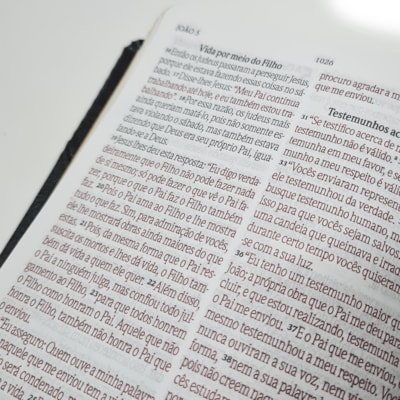 JOÃO 5
1026
Vida por meio do Filho
16 Então os judeus passaram a perseguir Jesus,
porque ele estava fazendo essas coisas no sá-
bado. 17 Disse-lhes Jesus: "Meu Pai continua
trabalhando até hoje, e eu também estou tra-
balhando". 18 Por essa razão, os judeus mais
ainda queriam matá-lo, pois não somente es-
tava violando o sábado, mas também estava
dizendo que Deus era seu próprio Pai, igua-
lando-se a Deus.
19 Jesus lhes deu esta resposta: "Eu digo verda-
deiramente que o Filho não pode fazer nada
de si mesmo; só pode fazer o que vê o Pai fa-
zer, porque o que o Pai faz o Filho também
faz. 20 Pois o Pai ama ao Filho e lhe mostra
tudo o que faz. Sim, para admiração de vocês,
ele lhe mostrará obras ainda maiores do que
estas. 21 Pois, da mesma forma que o Pai res-
suscita os mortos e lhes dá vida, o Filho tam-
bém dá vida a quem ele quer. 22 Além disso,
o Pai a ninguém julga, mas confiou todo jul-
gamento ao Filho, 23 para que todos honrem
o Filho como honram o Pai. Aquele que não
honra o Filho, também não honra o Pai que
"Eu asseguro: Quem ouve a minha palavra
naquele que me enviou tem a
será condenado,
procuro agradar a
que me enviou.
Testemunhos
31 "Se testifico acerca de
testemunho não é válido.
testemunha em meu favor, e se
munho a meu respeito é válido
33 "Vocês enviaram represent
testemunho da verdade.
busque testemunho humano,
isso para que vocês sejam salvos.
uma candeia que queimava e
durante certo tempo vocês quiseram
se com a sua luz.
36 "Eu tenho um testemunho maior que
João; a própria obra que o Pai me deu para
cluir, e que estou realizando, testemunha
o Pai me enviou. 37 E o Pai que me enviou,
mesmo testemunhou a meu respeito.
nunca ouviram a sua voz, nem
forma, 38 nem a sua palavra
pois não creem
cês estudam